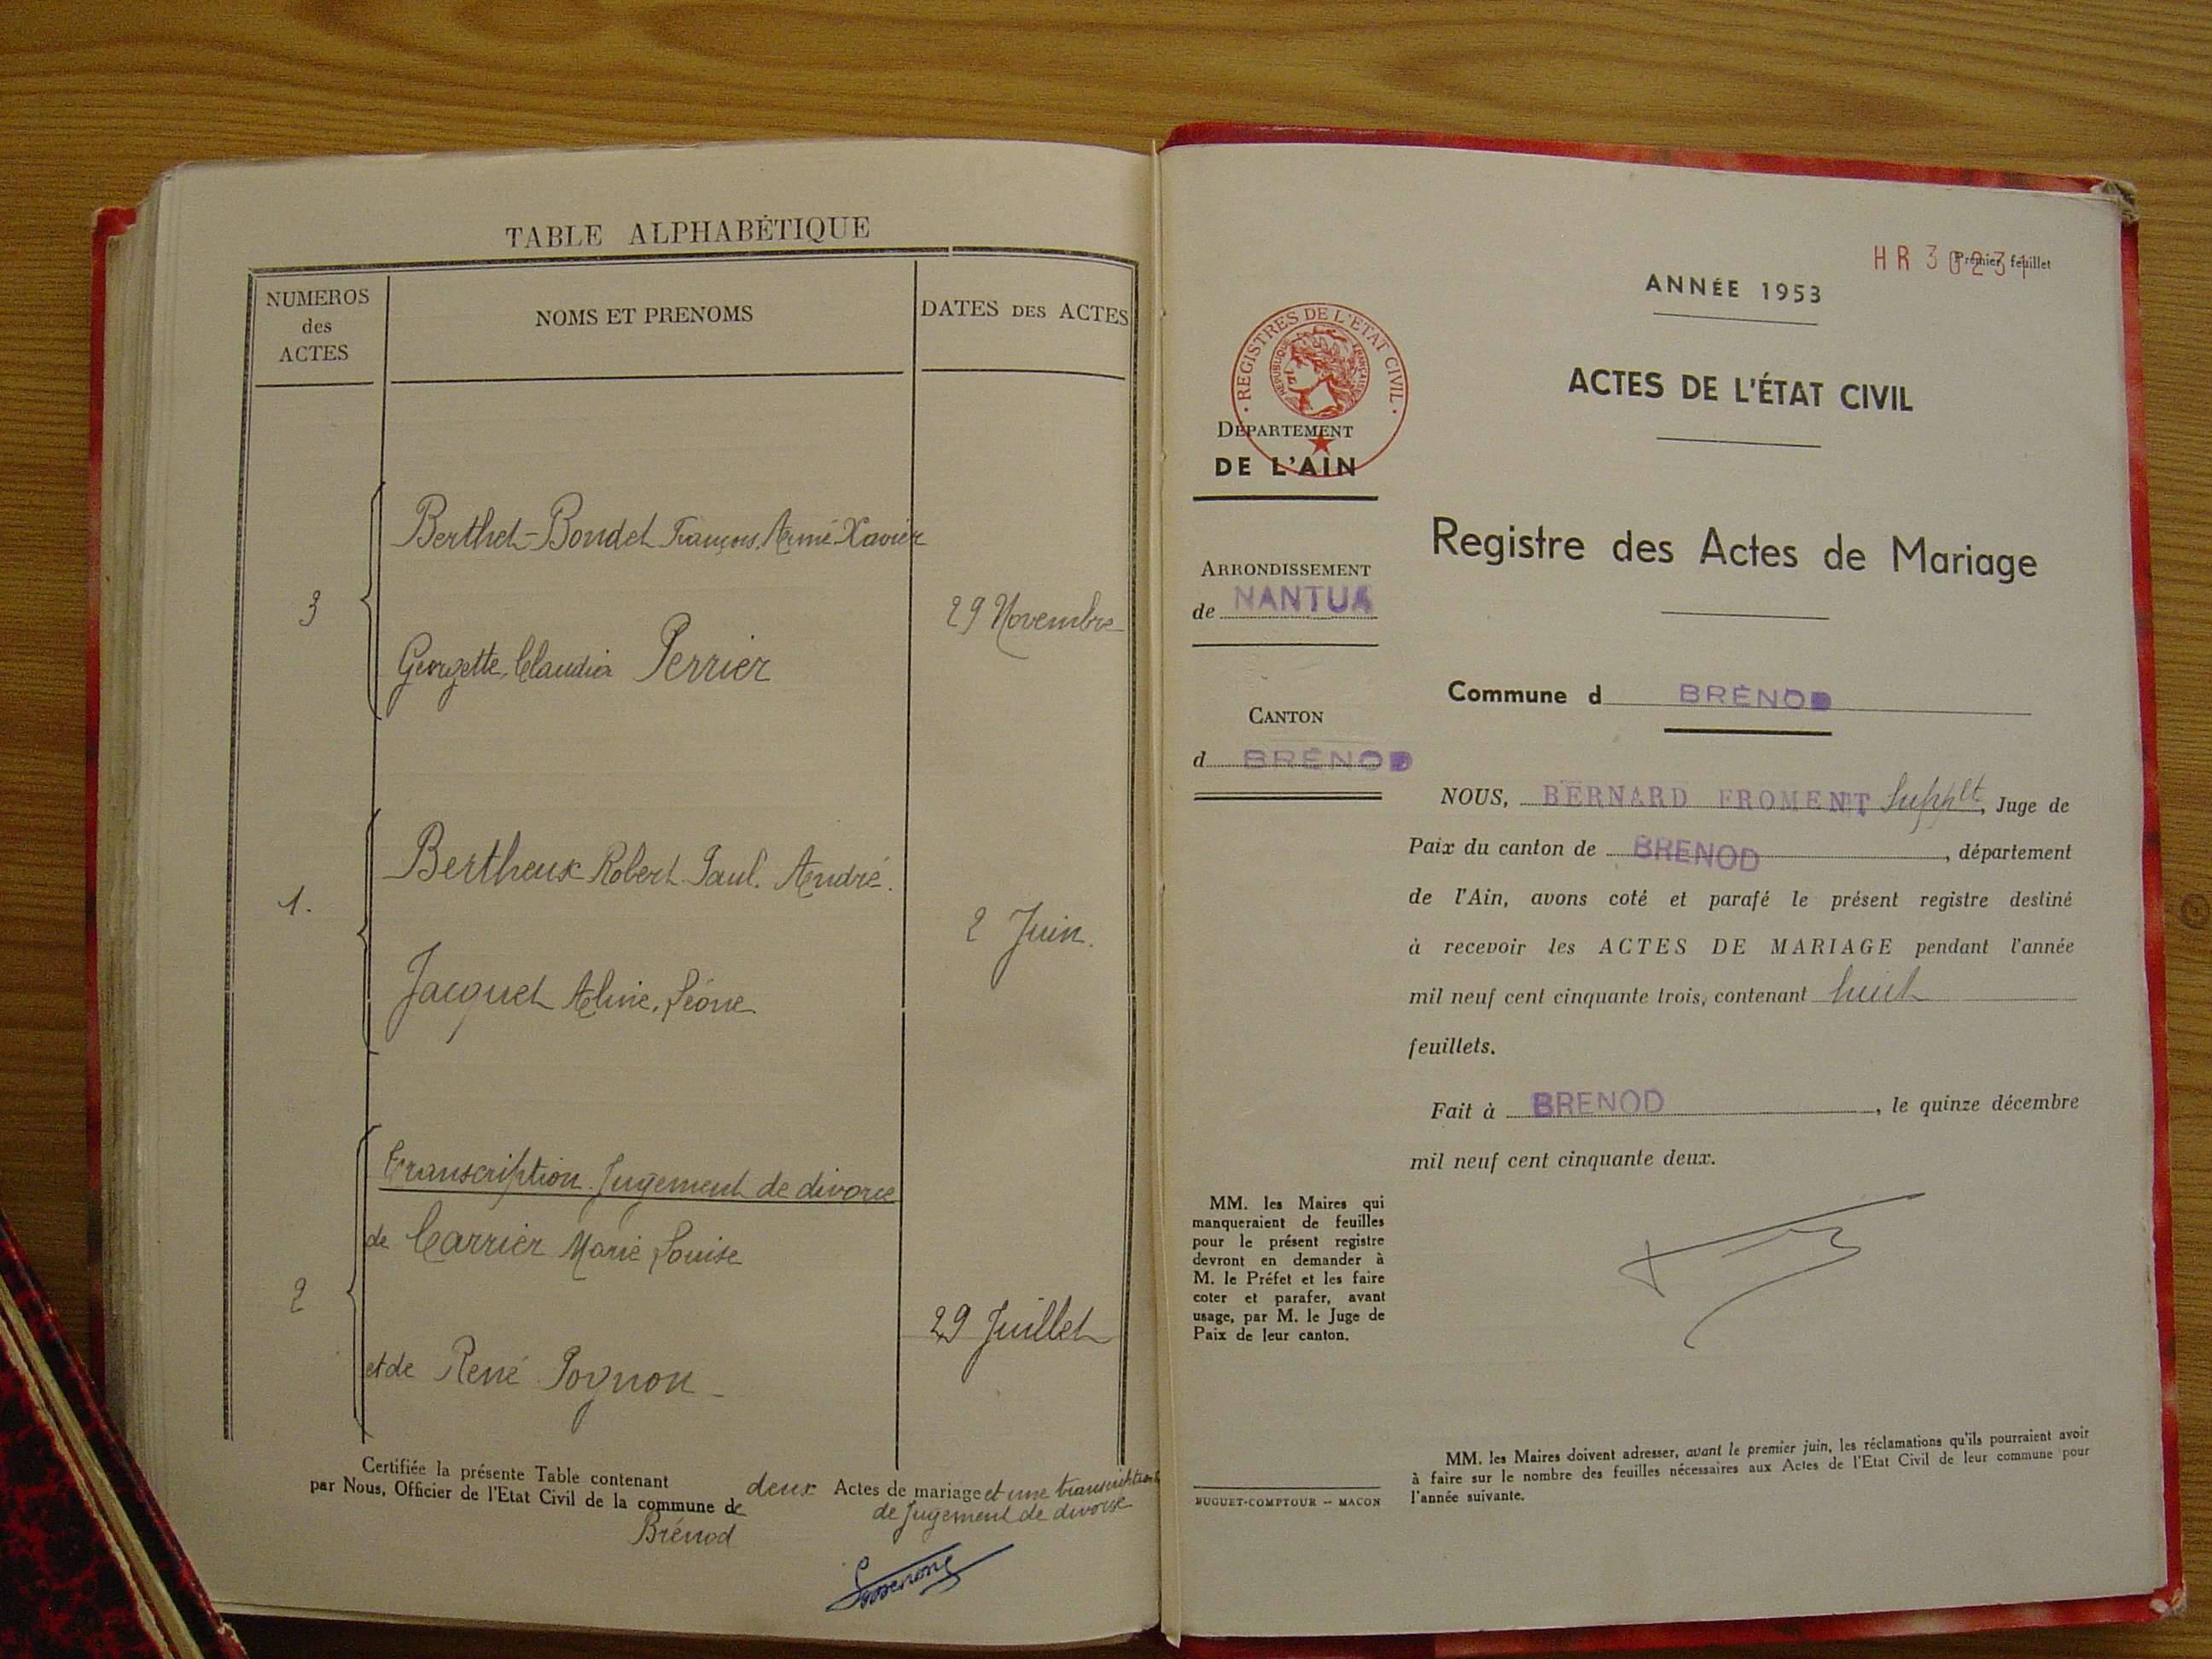 TABLE ALPHABÉTIQUE
NUMEROS
des
ACTES
NOMS ET PRENOMS
DATES DES ACTES
3
Berthet-Bondet François, Aimé Xavier
Georgette, Claudia Perrier
29 Novembre
1.
Bertheux Robert Paul. André.
Jacquet Aline, Léone
2 Juin.
2
Transcription Jugement de divorce
de Carrier Marie Louise
et de René Pognon
29 Juillet
Certifiée la présente Table contenant deux Actes de mariage et une transcription
de Jugement de divorce
par Nous, Officier de l'Etat Civil de la commune de
Brénod
HR 30231
Premier feuillet
ANNÉE 1953
REGISTRES DE L'ETAT CIVIL
REPUBLIQUE FRANÇAISE
ACTES DE L'ÉTAT CIVIL
DÉPARTEMENT
DE L'AIN
Registre des Actes de Mariage
ARRONDISSEMENT
de NANTUA
Commune d BRÉNOD
CANTON
d BRÉNOD
NOUS, BERNARD FROMENT Supplt, Juge de
Paix du canton de BRENOD, département
de l'Ain, avons coté et parafé le présent registre destiné
à recevoir les ACTES DE MARIAGE pendant l'année
mil neuf cent cinquante trois, contenant huit
feuillets.
Fait à BRENOD, le quinze décembre
mil neuf cent cinquante deux.
MM. les Maires qui
manqueraient de feuilles
pour le présent registre
devront en demander à
M. le Préfet et les faire
coter et parafer, avant
usage, par M. le Juge de
Paix de leur canton.
MM. les Maires doivent adresser, avant le premier juin, les réclamations qu'ils pourraient avoir
à faire sur le nombre des feuilles nécessaires aux Actes de l'Etat Civil de leur commune pour
l'année suivante.
BUGUET-COMPTOUR -- MACON